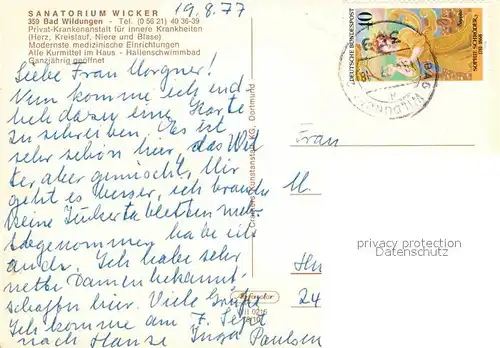 19.8.77
SANATORIUM WICKER
359 Bad Wildungen - Tel. (0 56 21) 40 36-39
Privat-Krankenanstalt für innere Krankheiten
(Herz, Kreislauf, Niere und Blase)
Modernste medizinische Einrichtungen
Alle Kurmittel im Haus - Hallenschwimmbad
Ganzjährig geöffnet
Liebe Frau Morgner!
Nun komme ich end-
lich dazu eine Karte
zu schreiben. Es ist
sehr schön hier, das Wet
ter aber gemischt. Mir
geht es besser, ich brauche
keine Zuckertabletten mehr
abgenommen habe ich
auch. Ich habe sehr
nette Damenbekannt-
schaften hier. Viele Grüße
Ich komme am 7. Sept
nach Hause Inga Paulsen
DEUTSCHE BUNDESPOST
40
SOPHIE SCHRÖDER
Frau
M.
privacy protection
Datenschutz
24